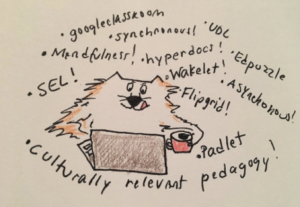 • googleclassroom
• synchronous!
• UDL
• Mindfulness!
• hyperdocs!
• Edpuzzle
• SEL!
• Wakelet!
• Flipgrid!
• Asynchronous!
• Padlet
• Culturally relevant pedagogy!